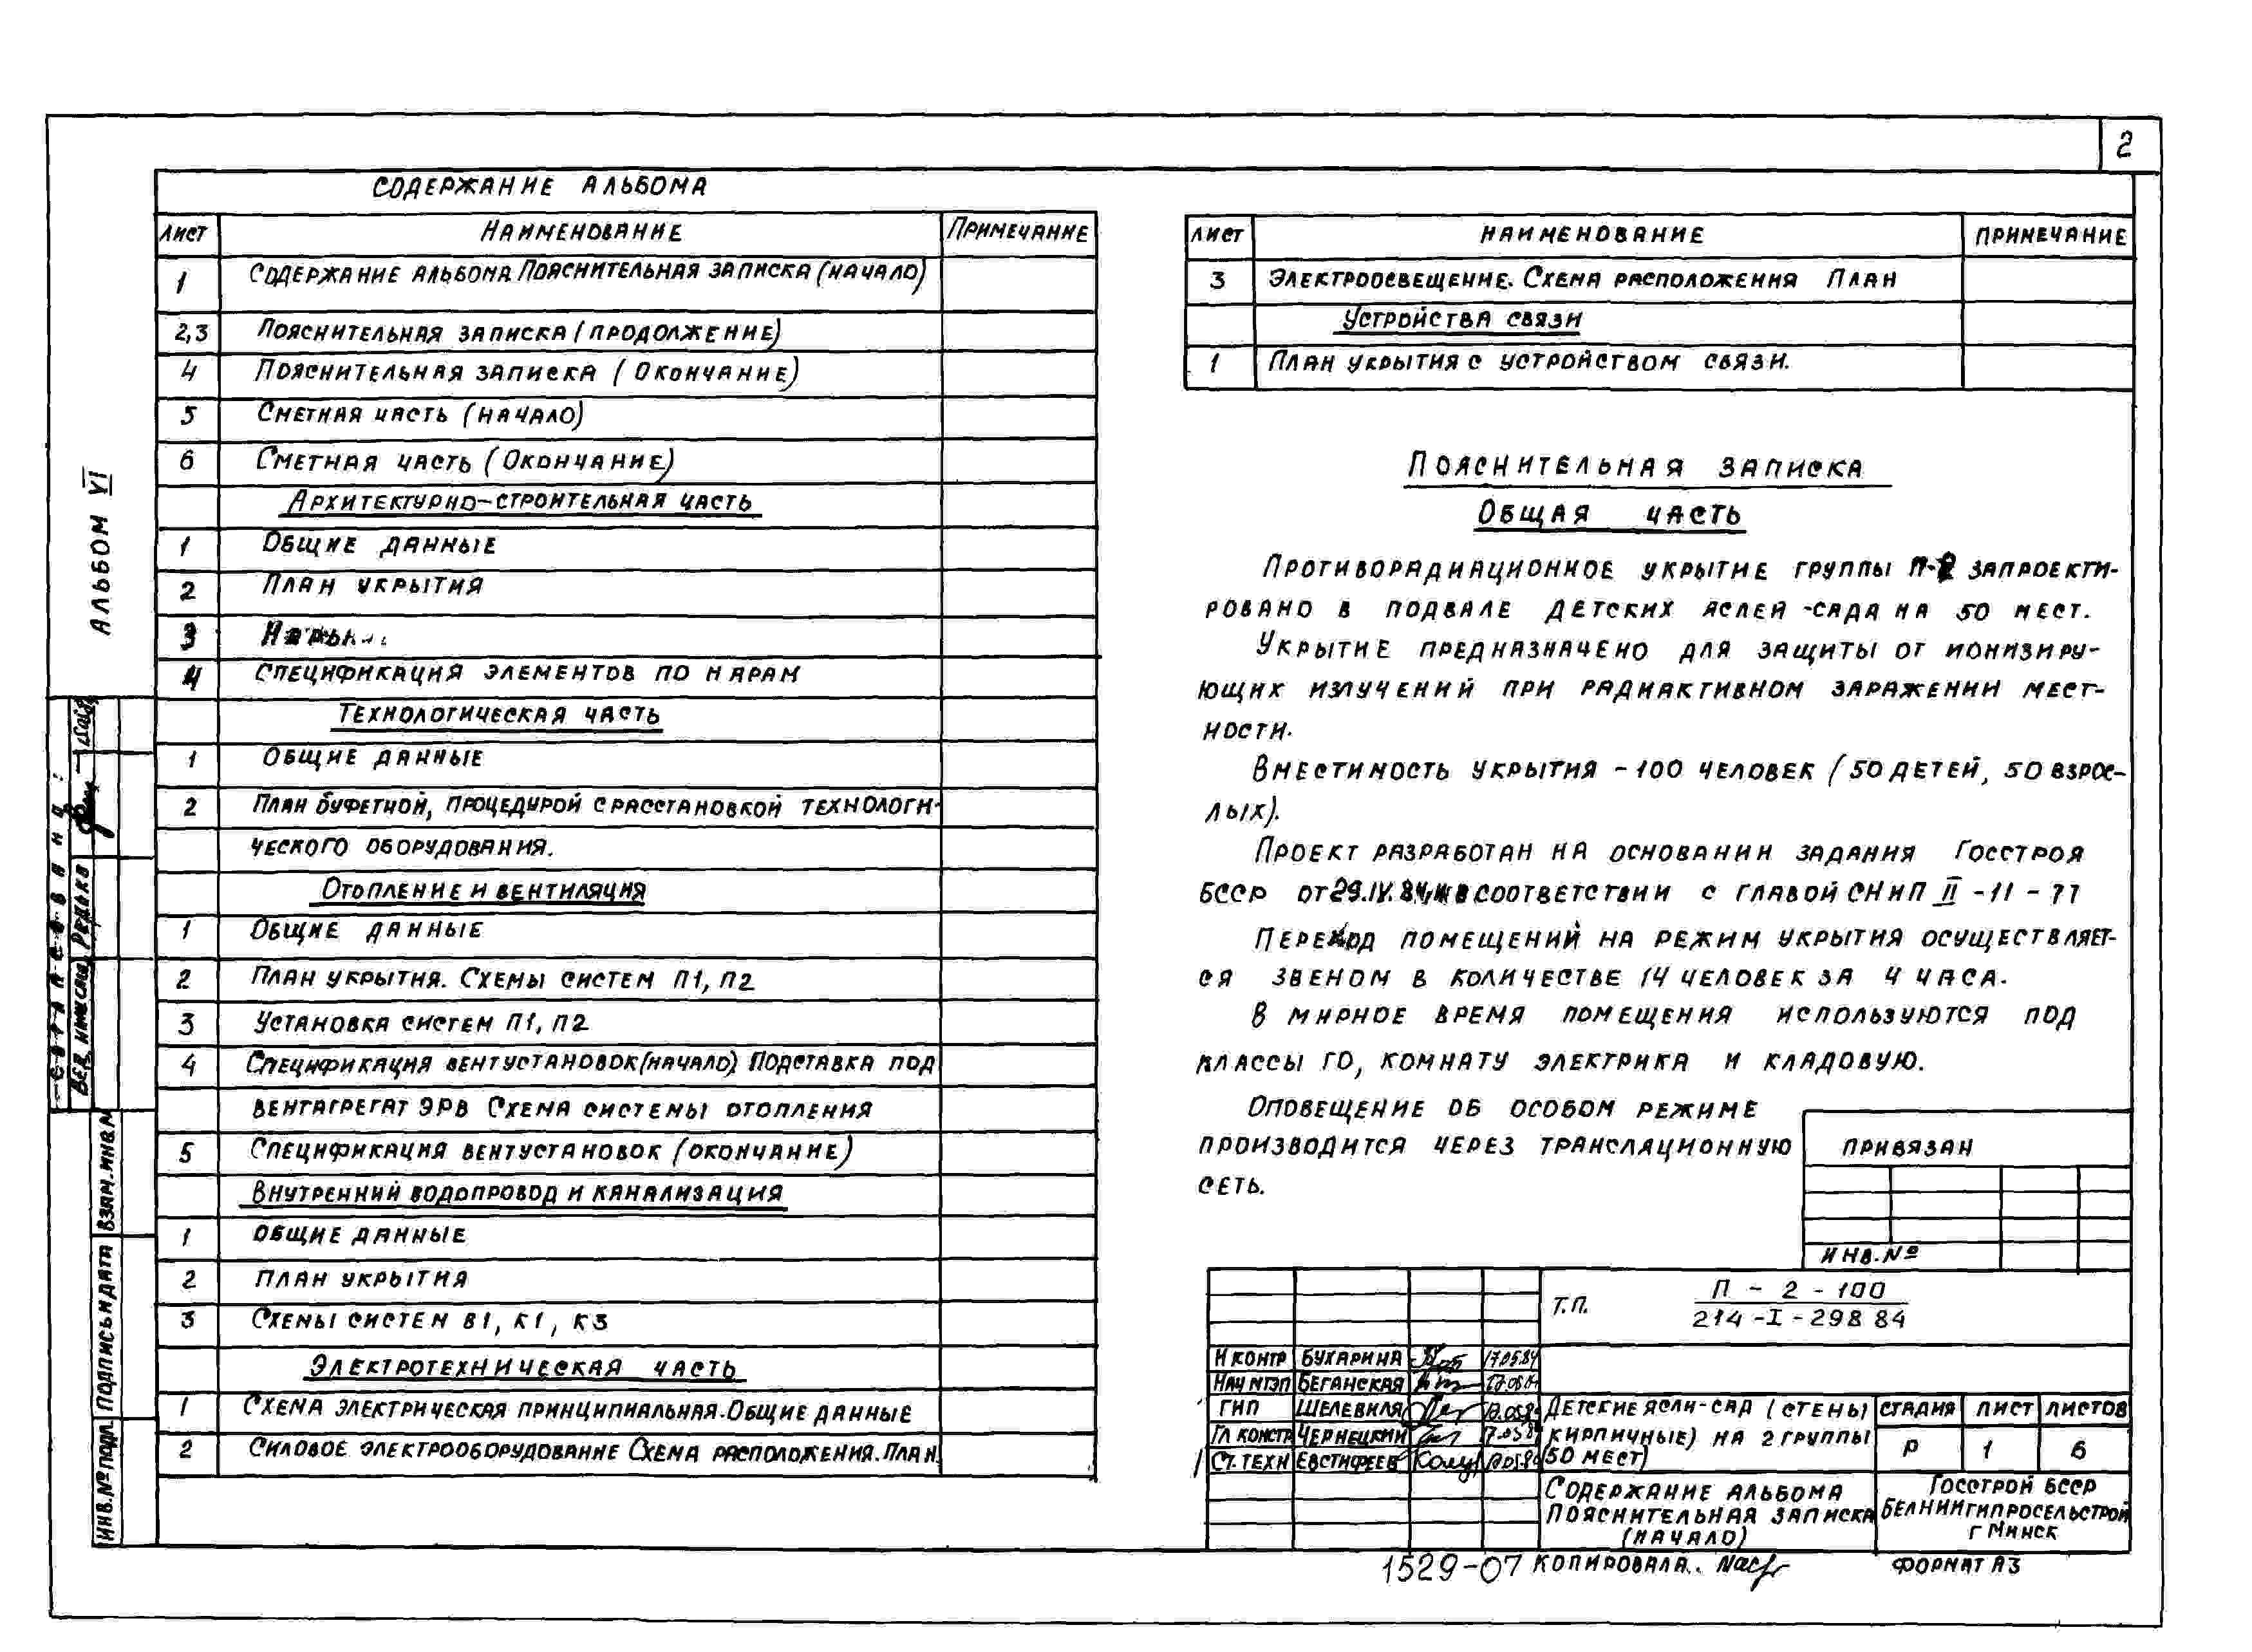 2
СОДЕРЖАНИЕ АЛЬБОМА
ЛИСТ НАИМЕНОВАНИЕ ПРИМЕЧАНИЕ
1 СОДЕРЖАНИЕ АЛЬБОМА. ПОЯСНИТЕЛЬНАЯ ЗАПИСКА (НАЧАЛО)
2,3 ПОЯСНИТЕЛЬНАЯ ЗАПИСКА (ПРОДОЛЖЕНИЕ)
4 ПОЯСНИТЕЛЬНАЯ ЗАПИСКА (ОКОНЧАНИЕ)
5 СМЕТНАЯ ЧАСТЬ (НАЧАЛО)
6 СМЕТНАЯ ЧАСТЬ (ОКОНЧАНИЕ)
АРХИТЕКТУРНО-СТРОИТЕЛЬНАЯ ЧАСТЬ
1 ОБЩИЕ ДАННЫЕ
2 ПЛАН УКРЫТИЯ
3
4 СПЕЦИФИКАЦИЯ ЭЛЕМЕНТОВ ПО НАРАМ
ТЕХНОЛОГИЧЕСКАЯ ЧАСТЬ
1 ОБЩИЕ ДАННЫЕ
2 ПЛАН БУФЕТНОЙ, ПРОЦЕДУРОЙ С РАССТАНОВКОЙ ТЕХНОЛОГИ-
ЧЕСКОГО ОБОРУДОВАНИЯ.
ОТОПЛЕНИЕ И ВЕНТИЛЯЦИЯ
1 ОБЩИЕ ДАННЫЕ
2 ПЛАН УКРЫТИЯ. СХЕМЫ СИСТЕМ П1, П2
3 УСТАНОВКА СИСТЕМ П1, П2
4 СПЕЦИФИКАЦИЯ ВЕНТУСТАНОВОК (НАЧАЛО) ПОДСТАВКА ПОД
ВЕНТАГРЕГАТ ЭРВ СХЕМА СИСТЕМЫ ОТОПЛЕНИЯ
5 СПЕЦИФИКАЦИЯ ВЕНТУСТАНОВОК (ОКОНЧАНИЕ)
ВНУТРЕННИЙ ВОДОПРОВОД И КАНАЛИЗАЦИЯ
1 ОБЩИЕ ДАННЫЕ
2 ПЛАН УКРЫТИЯ
3 СХЕМЫ СИСТЕМ В1, К1, К3
ЭЛЕКТРОТЕХНИЧЕСКАЯ ЧАСТЬ
1 СХЕМА ЭЛЕКТРИЧЕСКАЯ ПРИНЦИПИАЛЬНАЯ. ОБЩИЕ ДАННЫЕ
2 СИЛОВОЕ ЭЛЕКТРООБОРУДОВАНИЕ СХЕМА РАСПОЛОЖЕНИЯ. ПЛАН.
ЛИСТ НАИМЕНОВАНИЕ ПРИМЕЧАНИЕ
3 ЭЛЕКТРООСВЕЩЕНИЕ. СХЕМА РАСПОЛОЖЕНИЯ ПЛАН
УСТРОЙСТВА СВЯЗИ
1 ПЛАН УКРЫТИЯ С УСТРОЙСТВОМ СВЯЗИ.
ПОЯСНИТЕЛЬНАЯ ЗАПИСКА
ОБЩАЯ ЧАСТЬ
ПРОТИВОРАДИАЦИОННОЕ УКРЫТИЕ ГРУППЫ П-2 ЗАПРОЕКТИ-
РОВАНО В ПОДВАЛЕ ДЕТСКИХ ЯСЛЕЙ-САДА НА 50 МЕСТ.
УКРЫТИЕ ПРЕДНАЗНАЧЕНО ДЛЯ ЗАЩИТЫ ОТ ИОНИЗИРУ-
ЮЩИХ ИЗЛУЧЕНИЙ ПРИ РАДИАКТИВНОМ ЗАРАЖЕНИИ МЕСТ-
НОСТИ.
ВМЕСТИМОСТЬ УКРЫТИЯ - 100 ЧЕЛОВЕК (50 ДЕТЕЙ, 50 ВЗРОС-
ЛЫХ).
ПРОЕКТ РАЗРАБОТАН НА ОСНОВАНИИ ЗАДАНИЯ ГОССТРОЯ
БССР ОТ 29.IV.84 И В СООТВЕТСТВИИ С ГЛАВОЙ СНИП II-11-77
ПЕРЕХОД ПОМЕЩЕНИЙ НА РЕЖИМ УКРЫТИЯ ОСУЩЕСТВЛЯЕТ-
СЯ ЗВЕНОМ В КОЛИЧЕСТВЕ 14 ЧЕЛОВЕК ЗА 4 ЧАСА.
В МИРНОЕ ВРЕМЯ ПОМЕЩЕНИЯ ИСПОЛЬЗУЮТСЯ ПОД
КЛАССЫ ГО, КОМНАТУ ЭЛЕКТРИКА И КЛАДОВУЮ.
ОПОВЕЩЕНИЕ ОБ ОСОБОМ РЕЖИМЕ
ПРОИЗВОДИТСЯ ЧЕРЕЗ ТРАНСЛЯЦИОННУЮ
СЕТЬ.
ПРИВЯЗАН
ИНВ.№
Т.П. П-2-100
214-I-298 84
Н КОНТР БУХАРИНА 17.05.84
НАЧ МТЭП БЕГАНСКАЯ
ГИП ШЕЛЕВИЛЯ
ГЛ КОНСТР ЧЕРНЕЦКИЙ
СТ. ТЕХН ЕВСТИФЕЕВ
ДЕТСКИЕ ЯСЛИ-САД (СТЕНЫ
КИРПИЧНЫЕ) НА 2 ГРУППЫ
(50 МЕСТ)
СТАДИЯ ЛИСТ ЛИСТОВ
Р 1 6
СОДЕРЖАНИЕ АЛЬБОМА
ПОЯСНИТЕЛЬНАЯ ЗАПИСКА
(НАЧАЛО)
ГОССТРОЙ БССР
БЕЛНИИГИПРОСЕЛЬСТРОЙ
Г МИНСК
1529-07 КОПИРОВАЛА. ФОРМАТ А3
АЛЬБОМ VI
СОГЛАСОВАНЦ:
РЕДЬКО
ВЗАМ.ИНВ.№
ПОДПИСЬ И ДАТА
ИНВ.№ ПОДЛ.